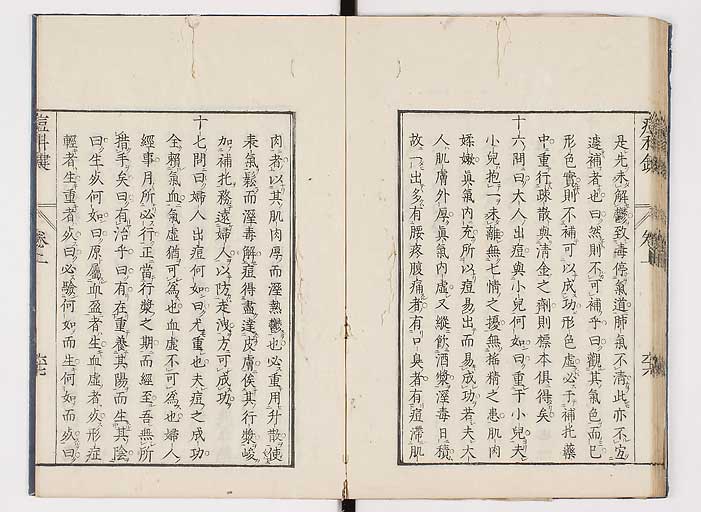 是先未解鬱致毒停氣道肺氣不清此亦不宜
遽補者也曰然則不可補乎曰觀其氣色而已
形色實則不補可以成功形色虛必于補托藥
中重行疎散與清金之劑則標本俱得矣
十六問曰大人出痘與小兒何如曰重于小兒夫
小兒抱一未離無七情之擾無搖精之患肌肉
嬌嫩眞氣內充所以痘易出而易成功若夫大
人肌膚外厚眞氣內虛又縱飮酒漿溼毒日積
故一出多有腰疼腹痛者有口臭者有痘滯肌
肉者以其肌肉厚而溼熱鬱也必重用升散使
表氣鬆而溼毒解痘得盡達皮膚俟其行漿峻
加補托務遠婦人以防走洩方可成功
十七問曰婦人出痘何如曰尤重也夫痘之成功
全賴氣血氣虛猶可爲也血虛不可爲也婦人
經事月所必行正當行漿之期而經至吾無所
措手矣曰有治乎曰有在重養其陽而生其陰
曰生死何如曰原屬血盈者生血虛者死形症
輕者生重者死曰必驗何如而生何如而死曰
痘科鍵
卷二